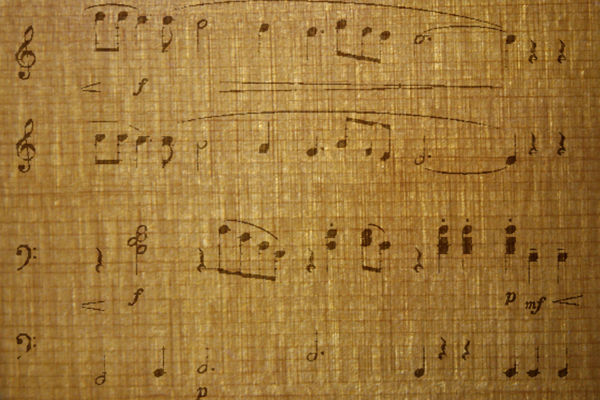 f
f
p mf
p